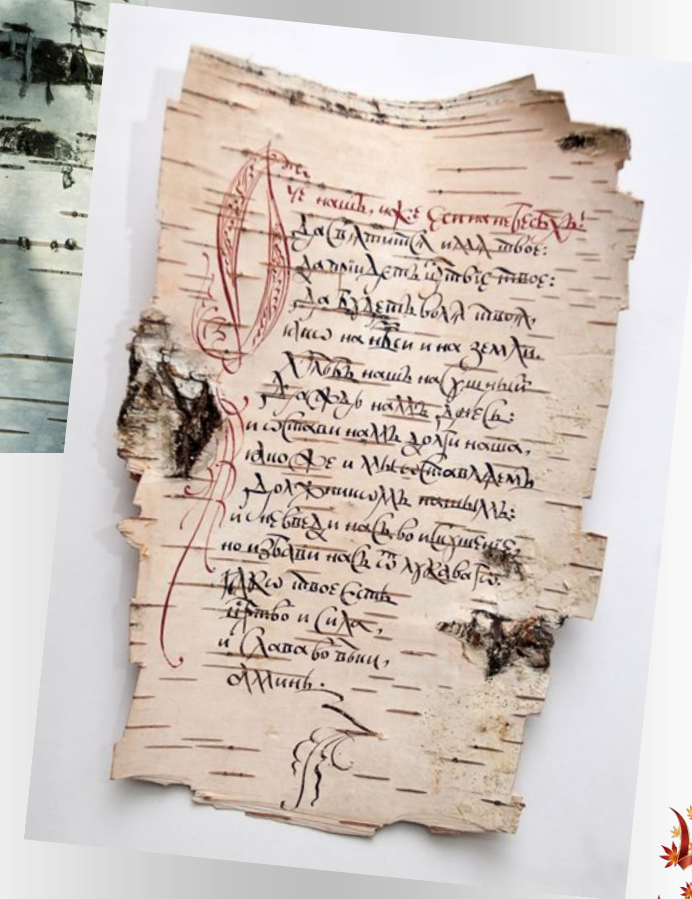 Отче нашъ, иже еси на небесѣхъ!
Да свѧтитсѧ имѧ твое:
да прїидетъ црⷭ҇твїе твое:
да бꙋдетъ волѧ твоѧ,
ꙗкѡ на нб҃си и на земли.
Хлѣбъ нашъ насꙋщный
даждь намъ днесь:
и ѡстави намъ долги наша,
ꙗкоже и мы ѡставлѧемъ
должникѡмъ нашымъ:
и не введи насъ во искꙋшенїе,
но избави насъ ѿ лꙋкавагѡ.
ꙗкѡ твое есть
црⷭ҇тво и сила,
и слава во вѣки,
аминь.